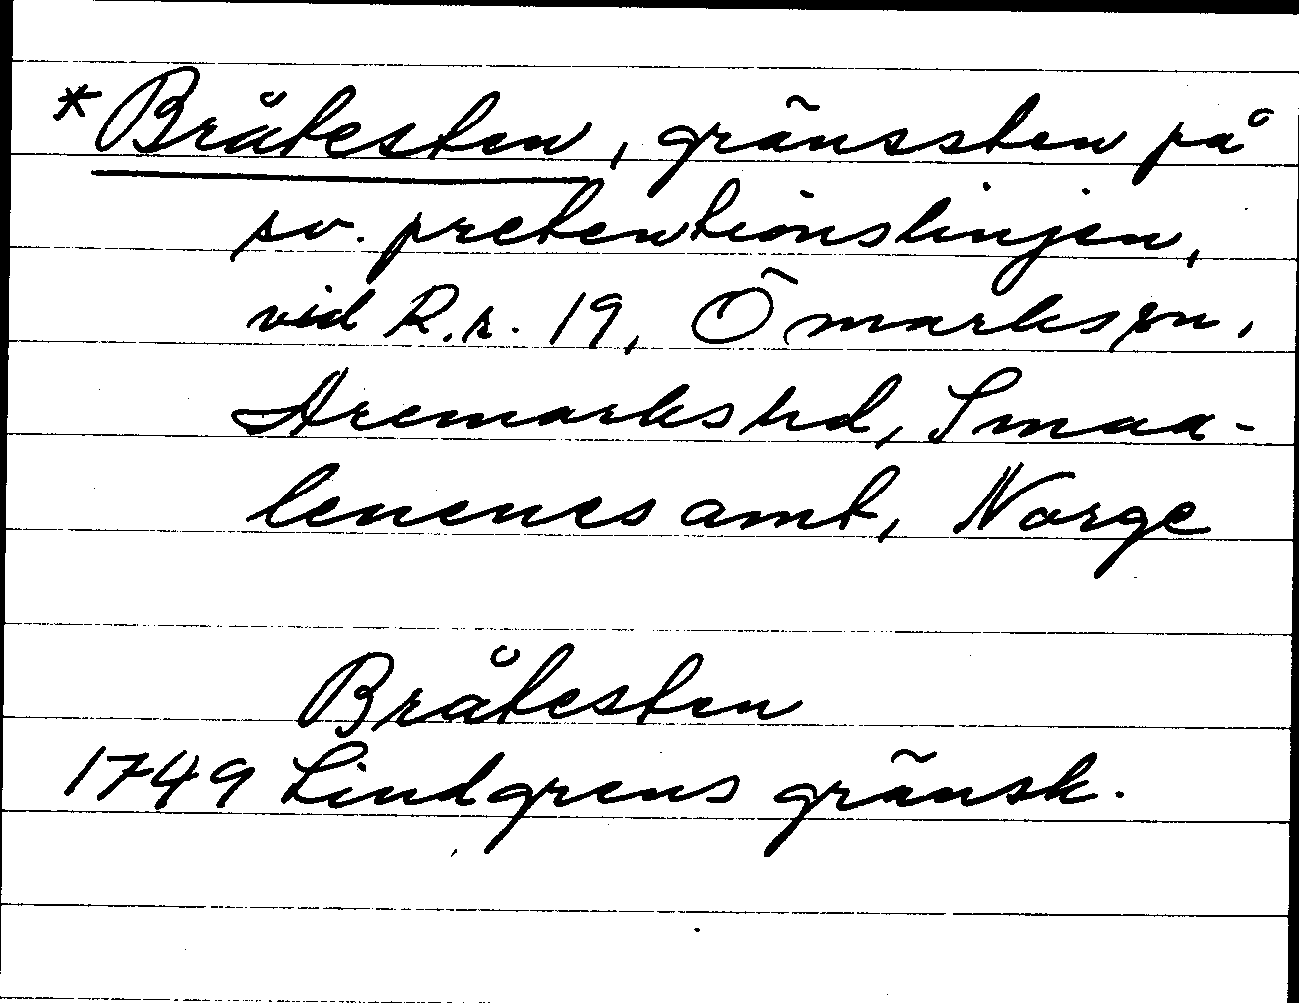 *Bråtesten, gränssten på
sv. pretentionslinjen,
vid R.r. 19, Ömarks sn,
Aremarks hd, Smaa-
lenenes amt, Norge
Bråtesten
1749 Lindgrens gränsk.